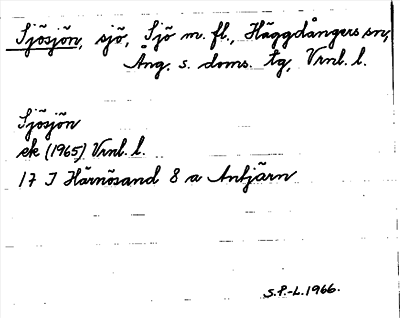 Sjösjön, sjö, Sjö m. fl., Häggdångers sn,
Ång. s. doms. tg, Vrnl. l.
Sjösjön
ek (1965) Vrnl. l.
17 I Härnösand 8 a Antjärn
S.P.-L. 1966.